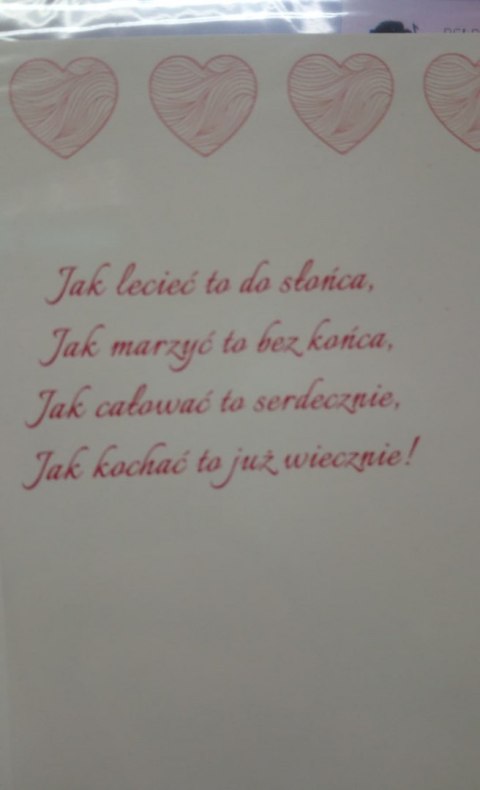 Jak lecieć to do słońca,
Jak marzyć to bez końca,
Jak całować to serdecznie,
Jak kochać to już wiecznie!